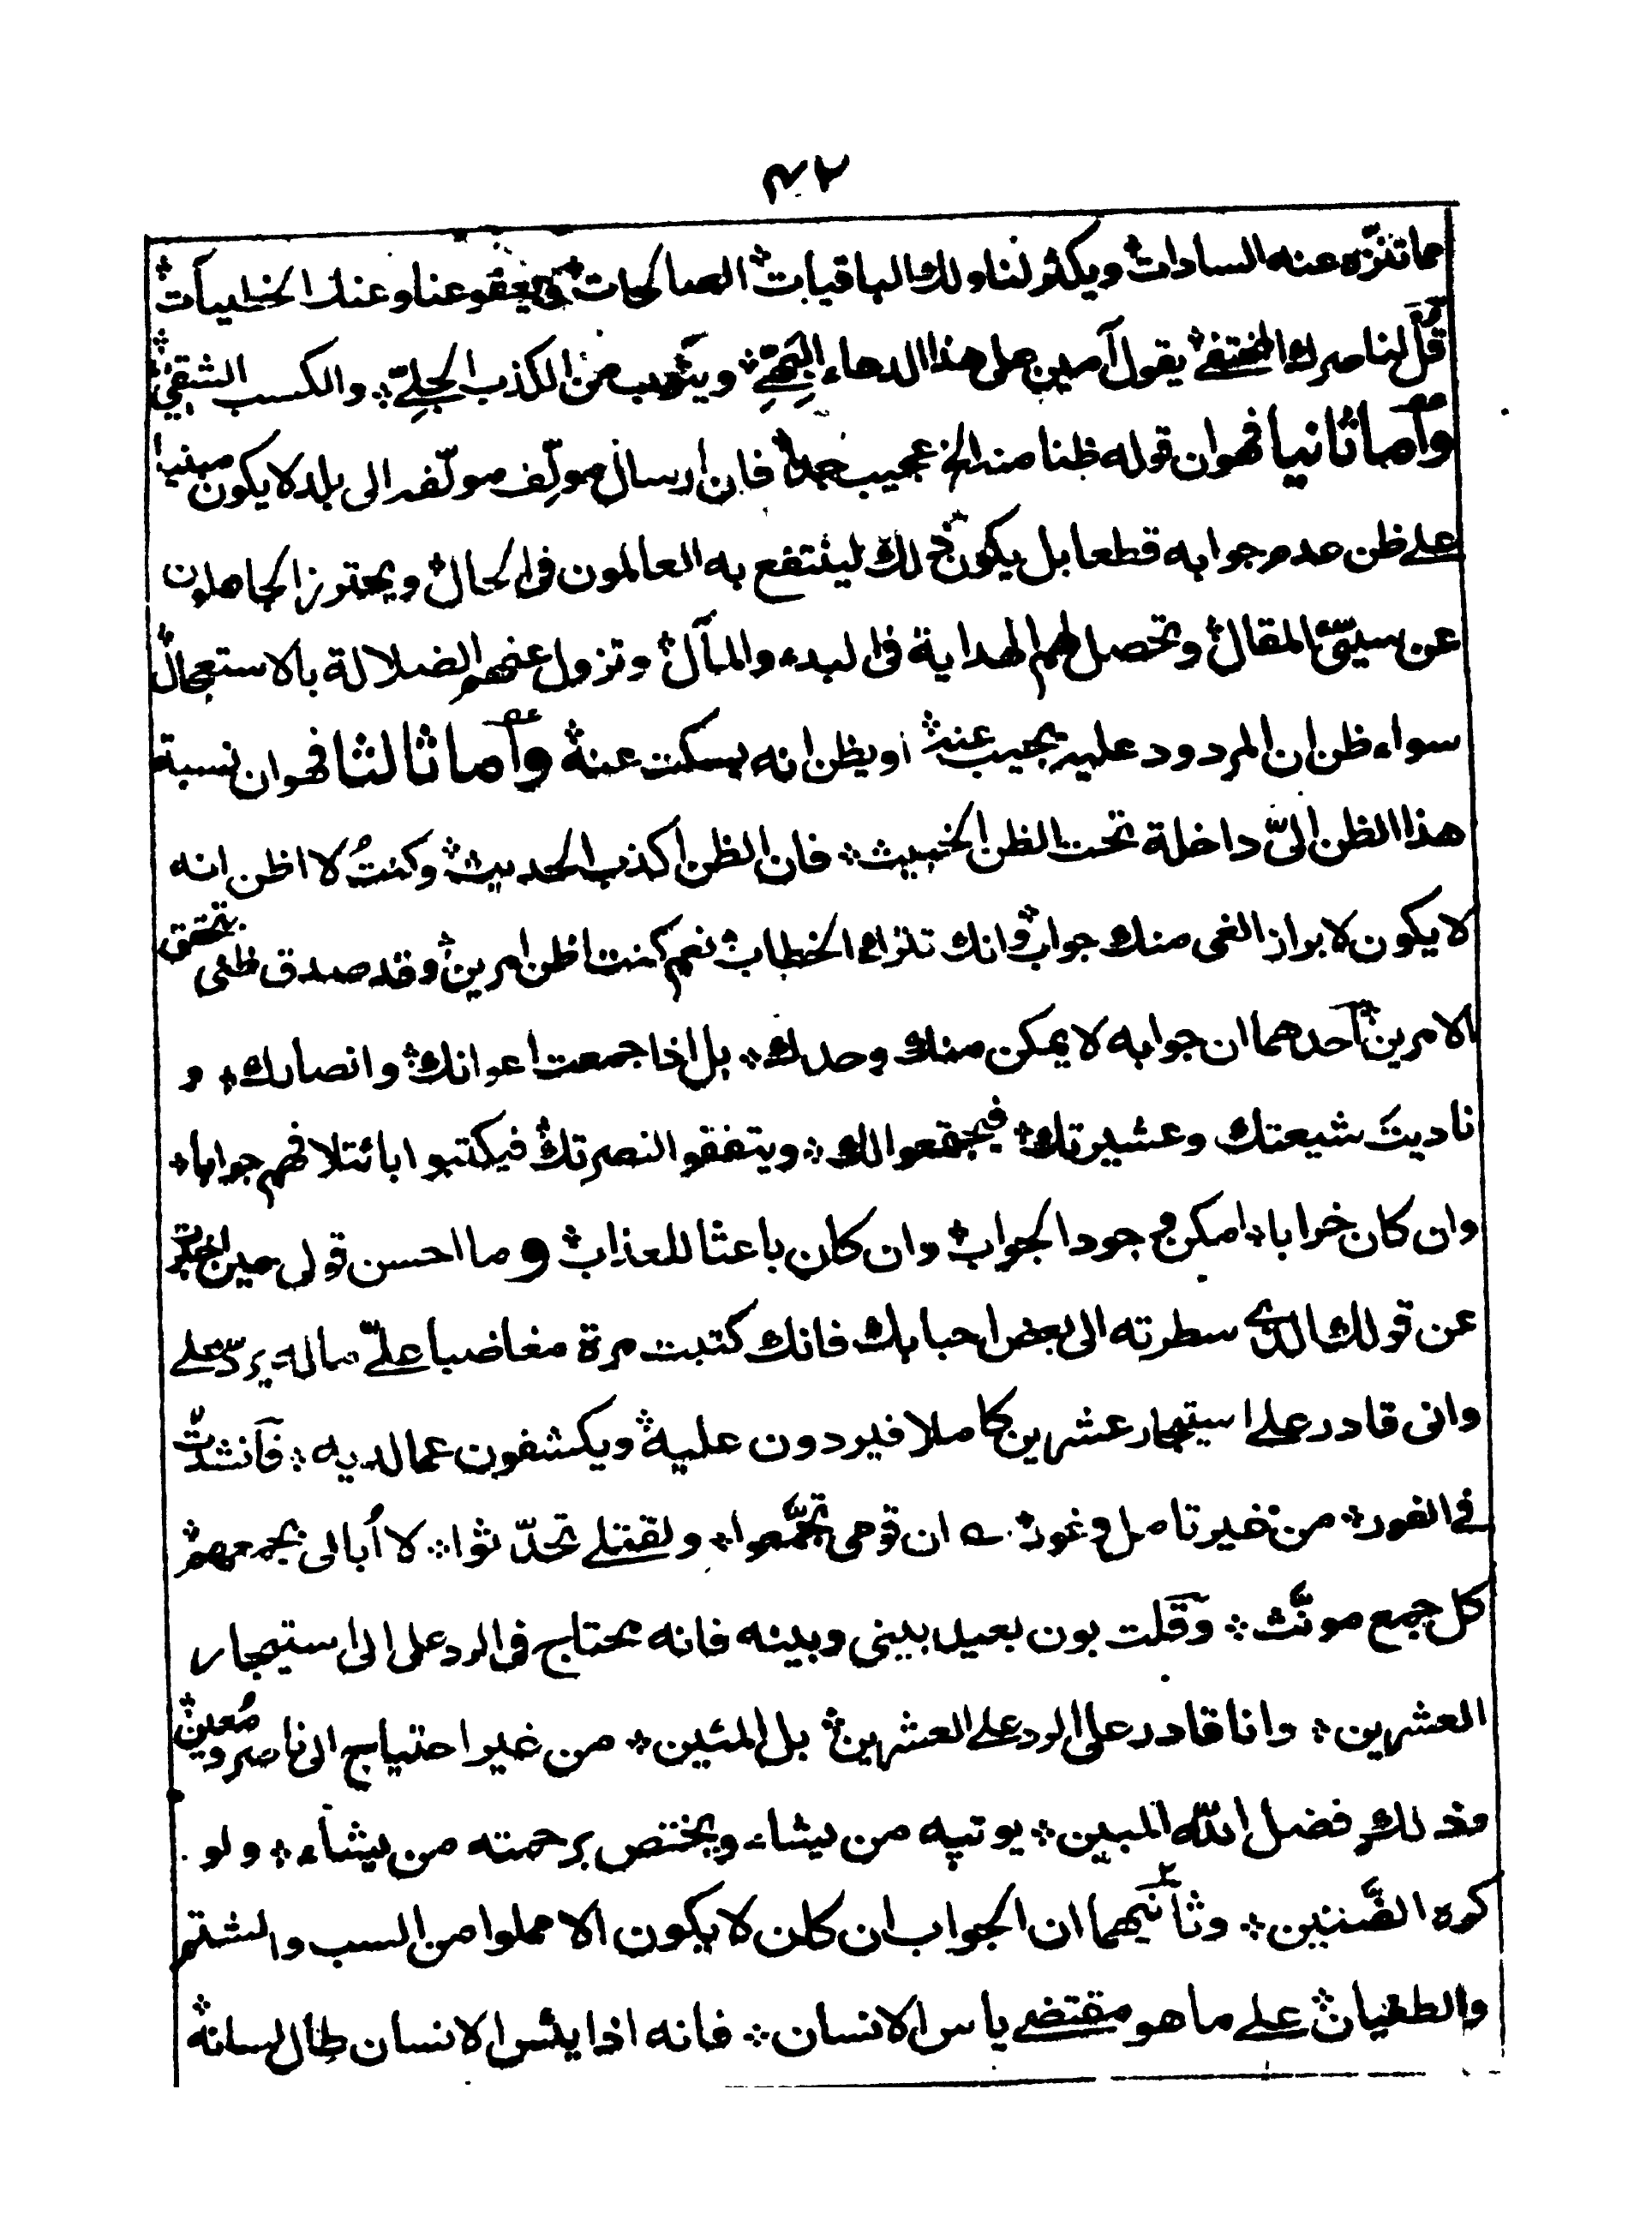 ٤٢
مما تنزه عنه السادات ؞ ويكثر لنا ولك الباقيات ؞ الصالحات ؞ ويعفو عنا وعنك الخطيآت ؞
قُل لناصرك المختفى ؞ يقول آمين على هذا الدعاء البَهِيِّ ؞ ويتوب من الكذب الجلِيِّ ؞ والكسب الشقيّ ؞
وآما ثانيا فهو ان قوله ظنا منه الخ عجيب جدا ؞ فان ارسال مولِّف مولَّفه الى بلد لا يكون مبنيا
على ظن عدم جوابه قطعا بل يكون ذلك لينتفع به العالمون فى الحال ؞ ويحترز الجاهلون
عن سيّئ المقال ؞ وتحصل لهم الهداية فى البدء والمآل ؞ وتزول عنهم الضلالة بالاستعجال ؞
سواء ظن ان المردود عليه يجيب عنه ؞ او يظن انه يسكت عنه ؞ وآما ثالثا فهو ان نسبة
هذا الظن الىّ داخلة تحت الظن الخبيث ؞ فان الظن اكذب الحديث ؞ وكنتُ لا اظن انه
لا يكون لابراز الغى منك جواب ؞ وانك تترك الخطاب ؞ نعم كنت اظن امرين ؞ وقد صدق ظنى بتحقق
الامرين ؞ آحدهما ان جوابه لا يمكن منك وحدك ؞ بل اذا جمعت اعوانك ؞ وانصارك ؞ و
ناديتَ شيعتك وعشيرتك ؞ فيجتمعوا لك ؞ ويتفقوا لنصرتك ؞ فيكتبوا بائتلافهم جوابا ؞
وان كان خرابا ؞ امكن وجود الجواب ؞ وان كان باعثا للعذاب ؞ وما احسن قولى حين اخبرت
عن قولك الذى سطرته الى بعض احبابك فانك كتبت مرة مغاضبا علىّ ماله يرد على
وانى قادر على استيجار عشرين كاملا فيردون عليه ؞ ويكشفون عما لديه ؞ فآنشدتُ
فى الفور ؞ من غير تامل وغور ؞ ان قومى تجمَّعوا ؞ ولقتلى تحدّثوا ؞ لا اُبالى بجمعهم ؞
كل جمع مونَّث ؞ وقلت بون بعيد بينى وبينه فانه يحتاج فى الرد على الى استيجار
العشرين ؞ وانا قادر على الرد على العشرين ؞ بل المئين ؞ من غير احتياج الى ناصر ومُعين ؞
وذلك فضل الله المبين ؞ يوتيه من يشاء ويختص برحمته من يشاء ؞ ولو
كره الضَّنين ؞ وثانيهما ان الجواب ان كان لا يكون الا مملوا من السب والشتم
والطغيان ؞ على ما هو مقتضى ياس الانسان ؞ فانه اذا يئس الانسان طال لسانه ؞